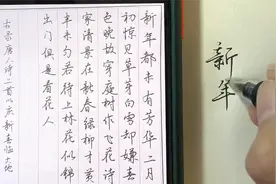 新年
新年都未有芳华二月
初惊见草芽白雪却嫌春
色晚故穿庭树作飞花诗
家清景在新春绿柳才黄
半未匀若待上林花似锦
出门俱是看花人
右录唐人诗二首以庆新临大地